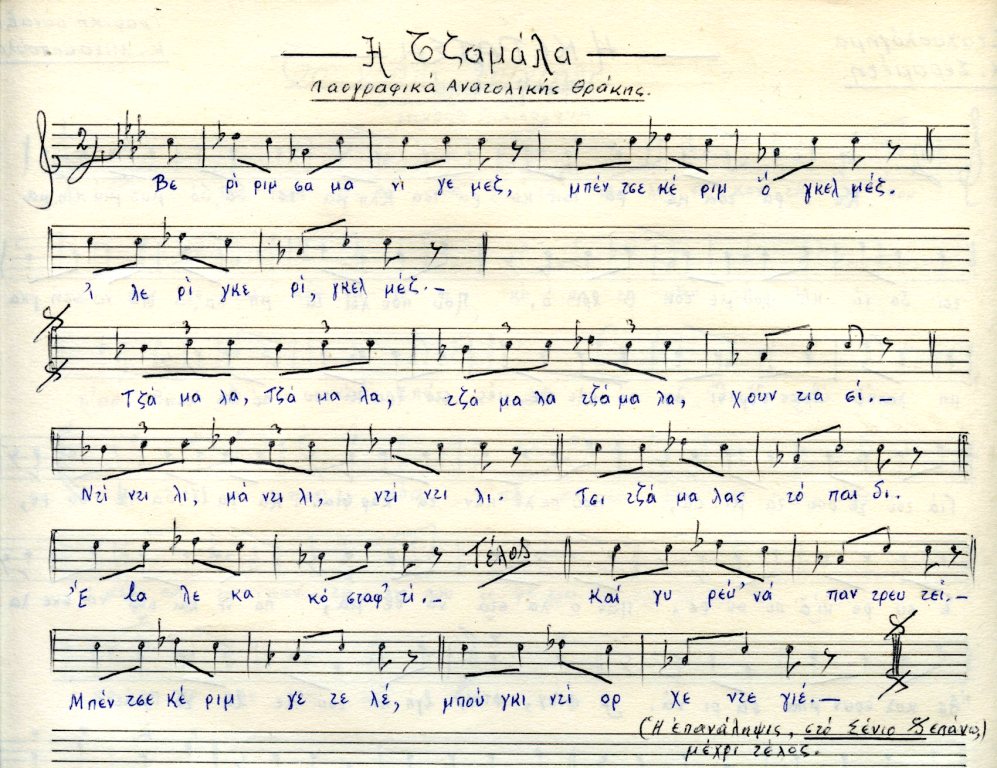 Η Τζαμάλα
Λαογραφικά Ανατολικής Θράκης.
Βε ρί ριμ σα μα νι γε μεζ, μπέν τσε κέ ριμ ὄ γκελ μέζ.
λε ρί γκε ρί γκελ μέζ.-
3 3 3 3
Τζά μα λα, Τζά μα λα, τζά μα λα τζά μα λα, χουν τια σί.-
3 3
Ντί ντι λι, μά ντι λι, ντί ντι λι. Τσι τζά μα λας τό παι δι.
Τέλος
Έ βα λε κα κό σταφ' τί.- Καί γυ ρεύ' νά παν τρευ τεί.-
Μπέν τσε κέ ριμ γε τε λέ, μπού γκι ντί ορ χε ντε γιέ.-
(Η ἐπανάληψις, στό Σένιο ἐπάνω,)
μέχρι τέλος.